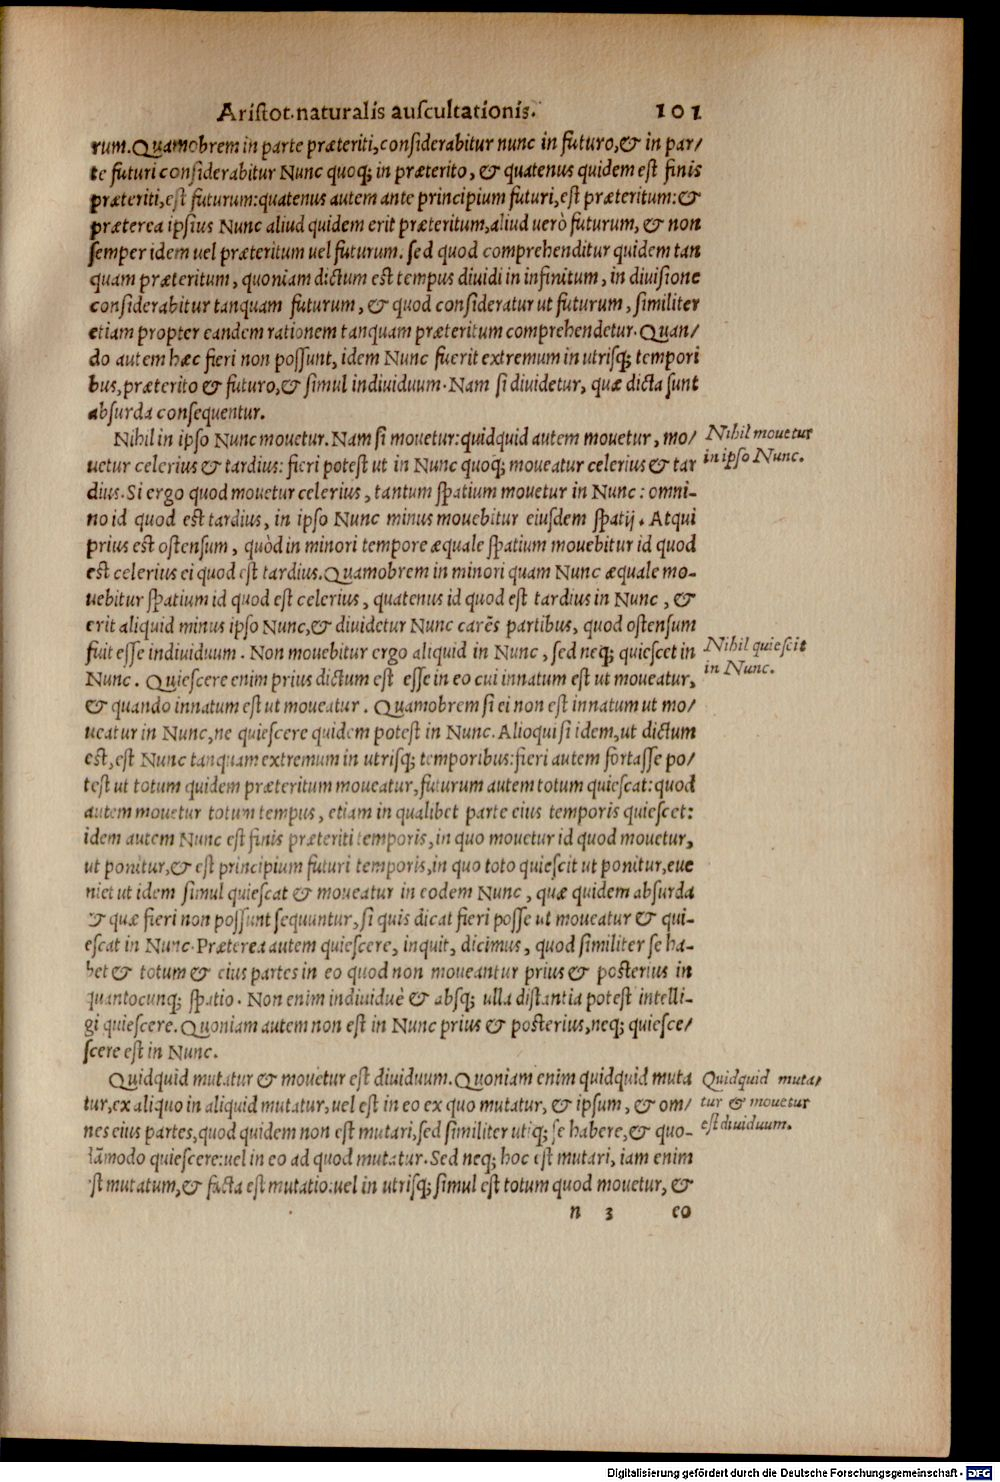 Aristot. naturalis auscultationis. 101
rum. Quamobrem in parte præteriti, considerabitur nunc in futuro, & in par/
te futuri considerabitur Nunc quoq; in præterito, & quatenus quidem est finis
præteriti, est futurum: quatenus autem ante principium futuri, est præteritum: &
præterea ipsius Nunc aliud quidem erit præteritum, aliud verò futurum, & non
semper idem uel præteritum uel futurum. sed quod comprehenditur quidem tan
quam præteritum, quoniam dictum est tempus diuidi in infinitum, in diuisione
considerabitur tanquam futurum, & quod consideratur ut futurum, similiter
etiam propter eandem rationem tanquam præteritum comprehendetur. Quan/
do autem hæc fieri non possunt, idem Nunc fuerit extremum in utrisq; tempori
bus, præterito & futuro, & simul indiuiduum. Nam si diuidetur, quæ dicta sunt
absurda consequentur.
Nihil in ipso Nunc mouetur. Nam si mouetur: quidquid autem mouetur, mo/
uetur celerius & tardius: fieri potest ut in Nunc quoq; moueatur celerius & tar
dius. Si ergo quod mouetur celerius, tantum spatium mouetur in Nunc: omni-
no id quod est tardius, in ipso Nunc minus mouebitur eiusdem spatij. Atqui
prius est ostensum, quòd in minori tempore æquale spatium mouebitur id quod
est celerius ei quod est tardius. Quamobrem in minori quam Nunc æquale mo-
uebitur spatium id quod est celerius, quatenus id quod est tardius in Nunc, &
erit aliquid minus ipso Nunc, & diuidetur Nunc carēs partibus, quod ostensum
fuit esse indiuiduum. Non mouebitur ergo aliquid in Nunc, sed neq; quiescet in
Nunc. Quiescere enim prius dictum est esse in eo cui innatum est ut moueatur,
& quando innatum est ut moueatur. Quamobrem si ei non est innatum ut mo/
ueatur in Nunc, ne quiescere quidem potest in Nunc. Alioqui si idem, ut dictum
est, est Nunc tanquam extremum in utrisq; temporibus: fieri autem fortasse po/
test ut totum quidem præteritum moueatur, futurum autem totum quiescat: quod
autem mouetur totum tempus, etiam in qualibet parte eius temporis quiescet:
idem autem Nunc est finis præteriti temporis, in quo mouetur id quod mouetur,
ut ponitur, & est principium futuri temporis, in quo toto quiescit ut ponitur, eue
niet ut idem simul quiescat & moueatur in eodem Nunc, quæ quidem absurda
& quæ fieri non possunt sequuntur, si quis dicat fieri posse ut moueatur & qui-
escat in Nunc. Præterea autem quiescere, inquit, dicimus, quod similiter se ha-
bet & totum & eius partes in eo quod non moueantur prius & posterius in
quantocunq; spatio. Non enim indiuiduè & absq; ulla distantia potest intelli-
gi quiescere. Quoniam autem non est in Nunc prius & posterius, neq; quiesce/
scere est in Nunc.
Quidquid mutatur & mouetur est diuiduum. Quoniam enim quidquid muta
tur, ex aliquo in aliquid mutatur, uel est in eo ex quo mutatur, & ipsum, & om/
nes eius partes, quod quidem non est mutari, sed similiter utiq; se habere, & quo-
dāmodo quiescere: uel in eo ad quod mutatur. Sed neq; hoc est mutari, iam enim
est mutatum, & facta est mutatio: uel in utrisq; simul est totum quod mouetur, &
n 3 eo
Nihil mouetur
in ipso Nunc.
Nihil quiescit
in Nunc.
Quidquid muta/
tur & mouetur
est diuiduum.
Digitalisierung gefördert durch die Deutsche Forschungsgemeinschaft - DFG